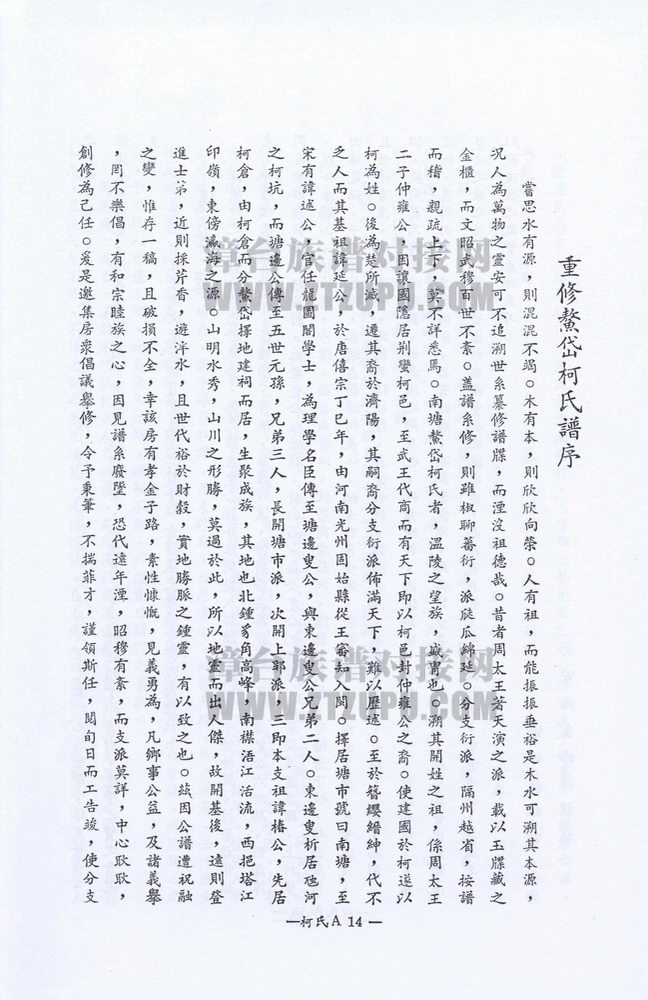 重修鰲岱柯氏譜序
嘗思水有源，則混混不竭。木有本，則欣欣向榮。人有祖，而能振振垂裕是木水可溯其本源，
況人為萬物之靈安可不追溯世系纂修譜牒，而湮沒祖德哉。昔者周太王著天演之派，載以玉牒藏之
金櫃，而文昭武穆百世不紊。蓋譜系修，則雖椒聊蕃衍，派颳瓜綿延。分支衍派，隔州越省，按譜
而稽，上下親疏，莫不詳悉焉。南塘鰲岱柯氏者，溫陵之望族，盛冑也。溯其開姓之祖，係周太王
二子仲雍公，因讓國隱居荆蠻柯邑，至武王代商而有天下即以柯邑封仲雍公之裔。使建國於柯遂以
柯為姓。後為楚所滅，遷其裔於濟陽，其嗣裔分支衍派佈滿天下，難以歷述。至於簪纓縉紳，代不
乏人而其基祖諱延公，於唐僖宗丁巳年，由河南光州固始縣從王審知入閩。擇居塘市號曰南塘，至
宋有諱述公，官任龍圖閣學士，為理學名臣傳至塘邊叟公，與東邊叟公兄弟二人。東邊叟析居㐌河
之柯坑，而塘邊公傳至五世元孫，兄弟三人，長開塘市派，次開上耶派，三即本支祖諱椿公，先居
柯倉，由柯倉而分鰲岱擇地建祠而居，生聚成族，其地也北鍾豸角高峰，南襟浯江活流，西挹塔江
印嶺，東傍瀛海之源。山明水秀，山川之形勝，莫過於此，所以地靈而出人傑，故開基後，遠則登
進士第，近則採芹香，遊泮水，且世代裕於財穀，實地勝脈之鍾靈，有以致之也。茲因公譜遭祝融
之變，惟存一稿，且破損不全，幸該房有孝金子路，素性慷慨，見義勇為，凡鄉事公益，及諸義舉
，罔不樂倡，有和宗睦族之心，因見譜系廢墜，恐代遠年湮，昭穆有紊，而支派莫詳，中心耿耿，
創修為己任。爰是邀集房眾倡議舉修，令予秉筆，不揣菲才，謹領斯任，閱旬日而工告竣，使分支
—柯氏A 14—
漳台族谱对接网
WWW.ZTZUPU.COM
漳台族谱对接网
WWW.ZTZUPU.COM